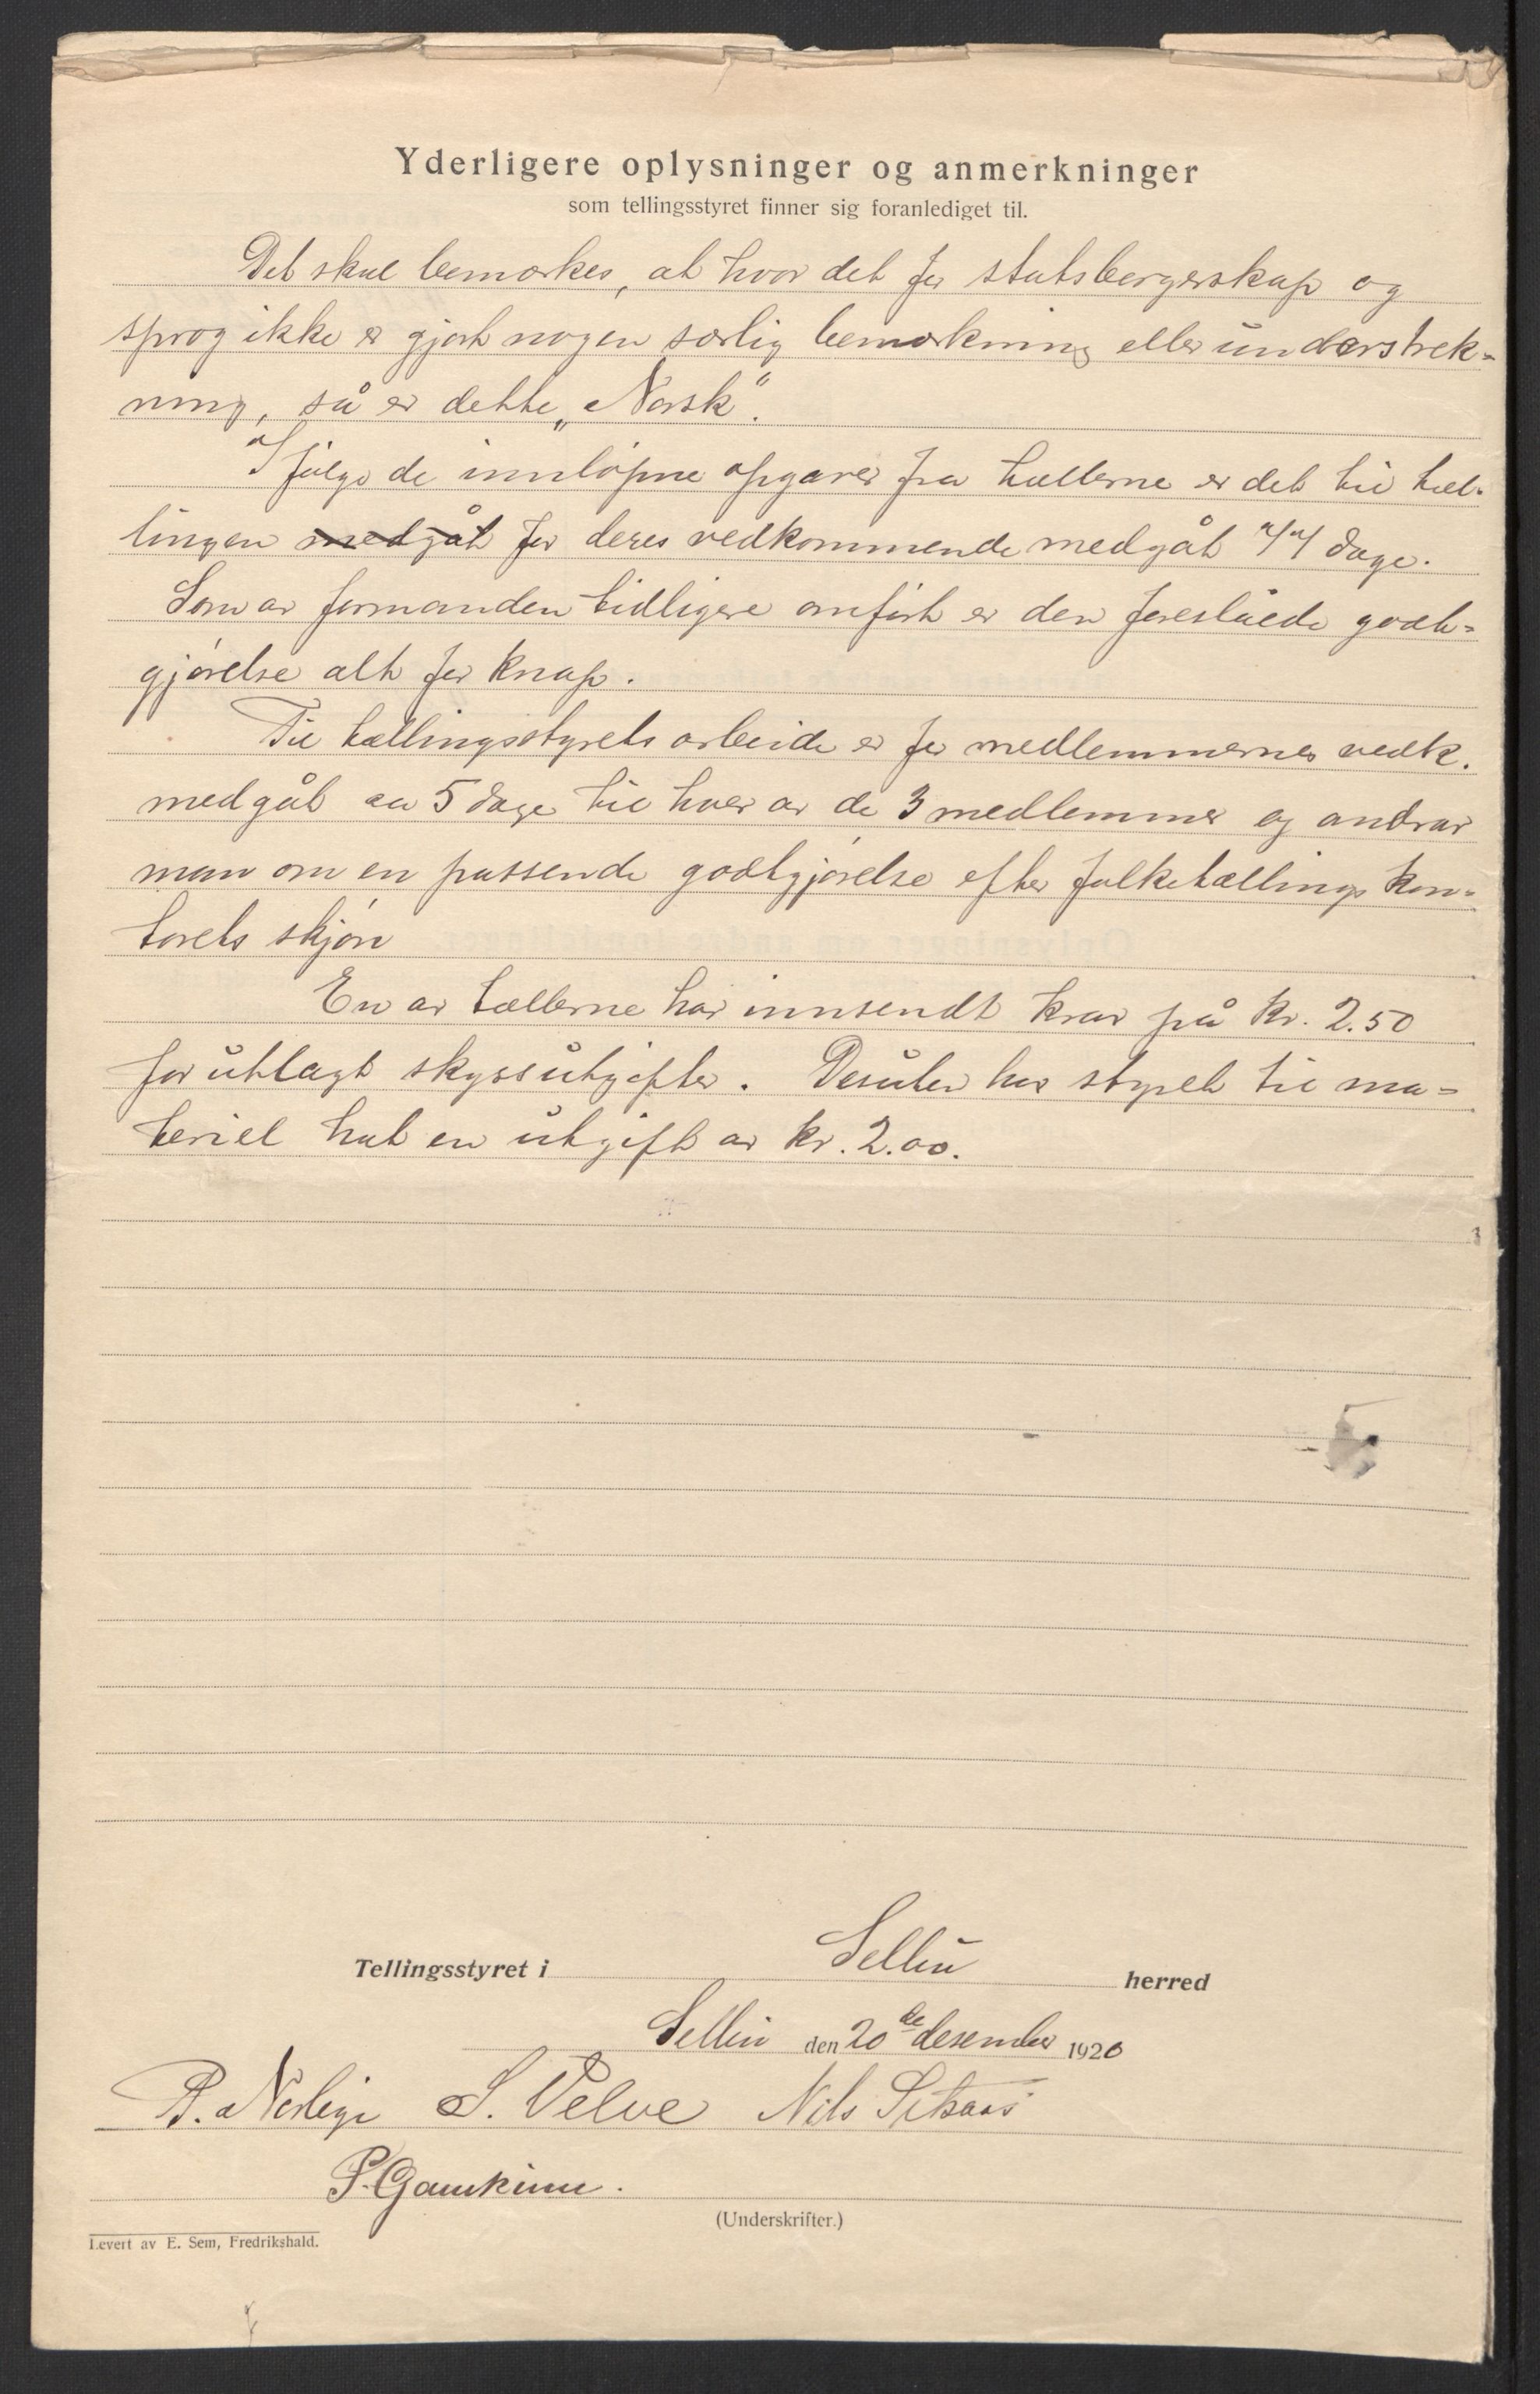 Yderligere oplysninger og anmerkninger
som tellingsstyret finner sig foranlediget til.
Det skal bemærkes, at hvor det for statsborgerskap og
sprog ikke er gjort nogen særlig bemærkning eller understrek-
ning, så er dette „Norsk“.
Ifølge de innløpne opgaver fra tællerne er det til tæl-
lingen medgåt for deres vedkommende medgåt 44 dage.
Som av formanden tidligere anført er den foreslåede godt-
gjørelse alt for knap.
Til tællingsstyrets arbeide er for medlemmernes vedk.
medgåt ca 5 dage til hver av de 3 medlemmer og andrar
man om en passende godtgjørelse efter folketællings kon-
torets skjøn
En av tællerne har innsendt krav på kr. 2.50
for utlagt skyssutgifter. Desuten har styret til ma-
teriel hat en utgift av kr. 2.00.
Tellingsstyret i Selbu herred
Selbu den 20de desember 1920
P. S. Velve Nils
P.
(Underskrifter.)
Levert av E. Sem, Fredrikshald.